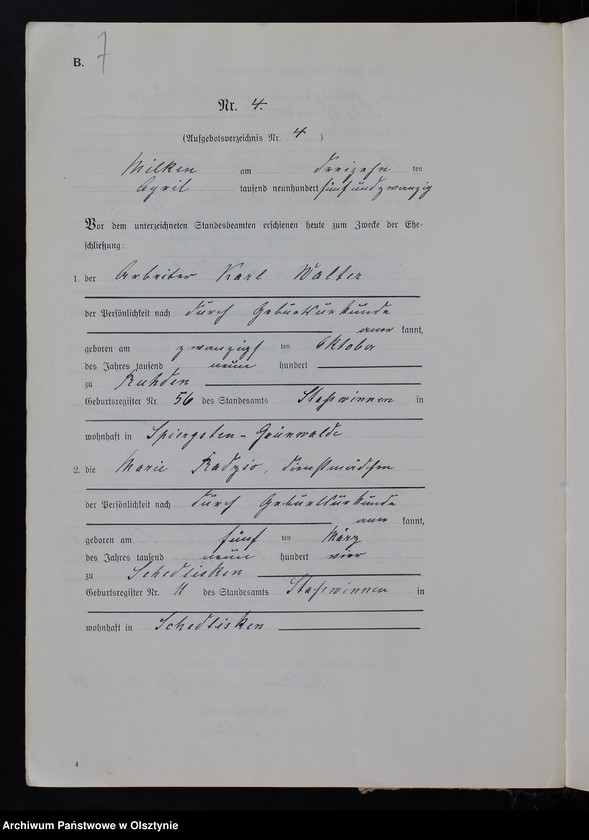 B. 7
Nr. 4.
(Aufgebotsverzeichnis Nr. 4)
Milken am dreizehn ten
April tausend neunhundert fünf und zwanzig
Vor dem unterzeichneten Standesbeamten erschienen heute zum Zwecke der Ehe-
schließung:
1. der Arbeiter Karl Walter
der Persönlichkeit nach durch Geburtsurkunde
aner kannt,
geboren am zwanzigst ten Oktober
des Jahres tausend neun hundert
zu Ruhden
Geburtsregister Nr. 56 des Standesamts Staßwinnen in
wohnhaft in Spiergsten-Grünwalde
2. die Marie Radzio, Dienstmädchen
der Persönlichkeit nach durch Geburtsurkunde
aner kannt,
geboren am fünf ten März
des Jahres tausend neun hundert vier
zu Schedlisken
Geburtsregister Nr. 11 des Standesamts Staßwinnen in
wohnhaft in Schedlisken
4
Archiwum Państwowe w Olsztynie